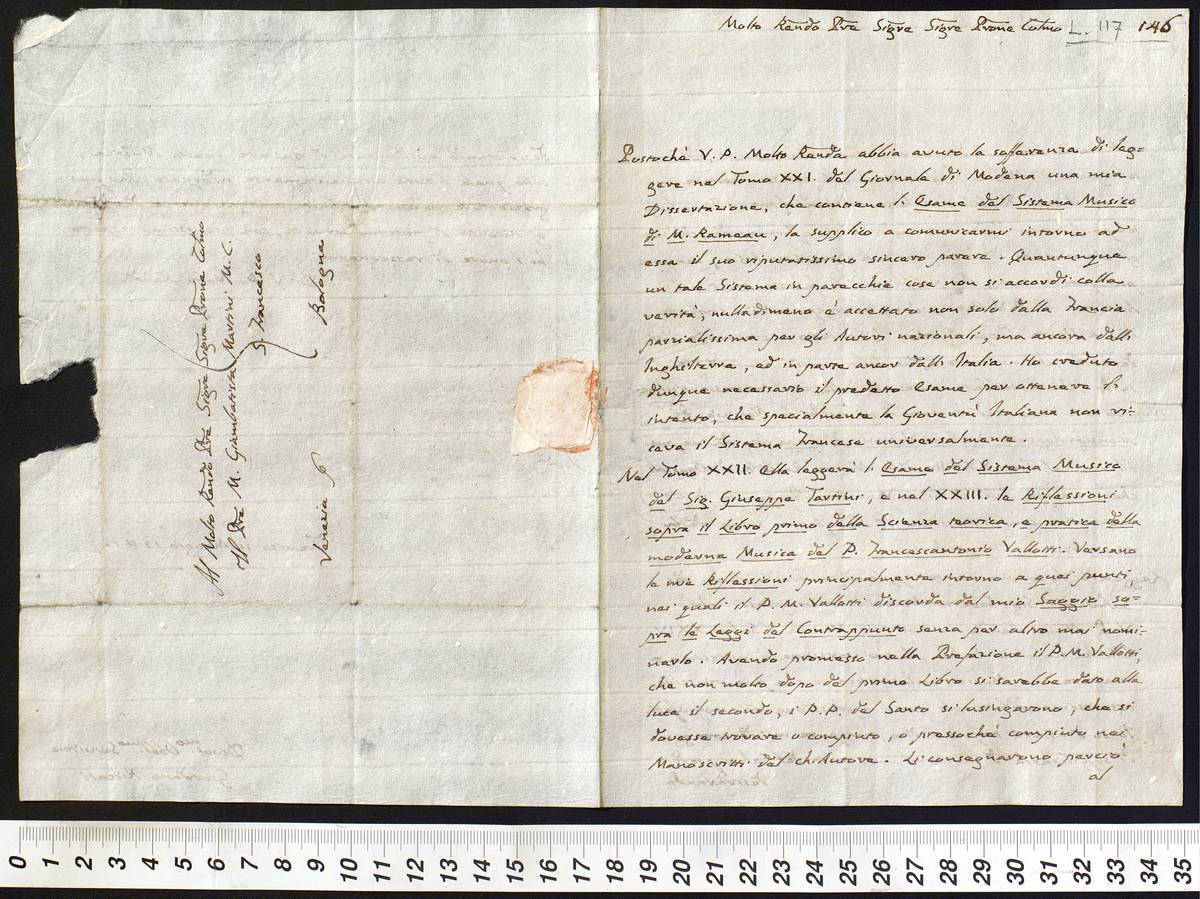 Molto Rendo Pre Sigre Sigre Prone Colmo L. 117 146
Postochè V. P. Molto Renda abbia avuto la sofferenza di leg=
gere nel Tomo XXI. del Giornale di Modena una mia
Dissertazione, che contiene l'Esame del Sistema Musico
di M. Rameau, la supplico a comunicarmi intorno ad
essa il suo riputatissimo sincero parere. Quantunque
un tale Sistema in parecchie cose non si accordi colla
verità, nulladimeno è accettato non solo dalla Francia
parzialissima per gli Autori nazionali, ma ancora dall'
Inghilterra, ed in parte ancor dall'Italia. Ho creduto
dunque necessario il predetto Esame per ottenere l'
intento, che specialmente la Gioventù Italiana non ri=
ceva il Sistema Francese universalmente.
Nel Tomo XXII. Ella leggerà l'Esame del Sistema Musico
del Sig. Giuseppe Tartini, e nel XXIII. le Riflessioni
sopra il Libro primo della Scienza teorica, e pratica della
moderna Musica del P. Francescantonio Vallotti. Versano
le mie Riflessioni principalmente intorno a quei punti,
nei quali il P. M. Vallotti discorda dal mio Saggio so=
pra le Leggi del Contrappunto senza per altro mai nomi=
narlo. Avendo promesso nella Prefazione il P. M. Vallotti,
che non molto dopo del primo Libro si sarebbe dato alla
luce il secondo, i P. P. del Santo si lusingarono, che si
dovesse trovare o compiuto, o pressochè compiuto nei
Manoscritti del ch. Autore. Li consegnarono perciò
al
Al Molto Rendo Pre Sigre Sigre Prone Colmo
Il Pre M. Giambatista Martini M. C.
S. Francesco
Venezia 6 Bologna